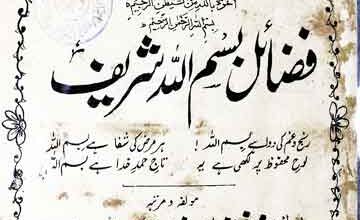 اعوذ باللہ من الشیطن الرجیم
بسم اللہ الرحمٰن الرحیم
فضائل بسم اللہ شریف
رنج و غم کی دوا ہے بسم اللہ ! ہر مرض کی شفا ہے بسم اللہ
لوح محفوظ پر لکھی ہے یہ تاج حمد خدا ہے بسم اللہ
مولفہ و مرتبہ